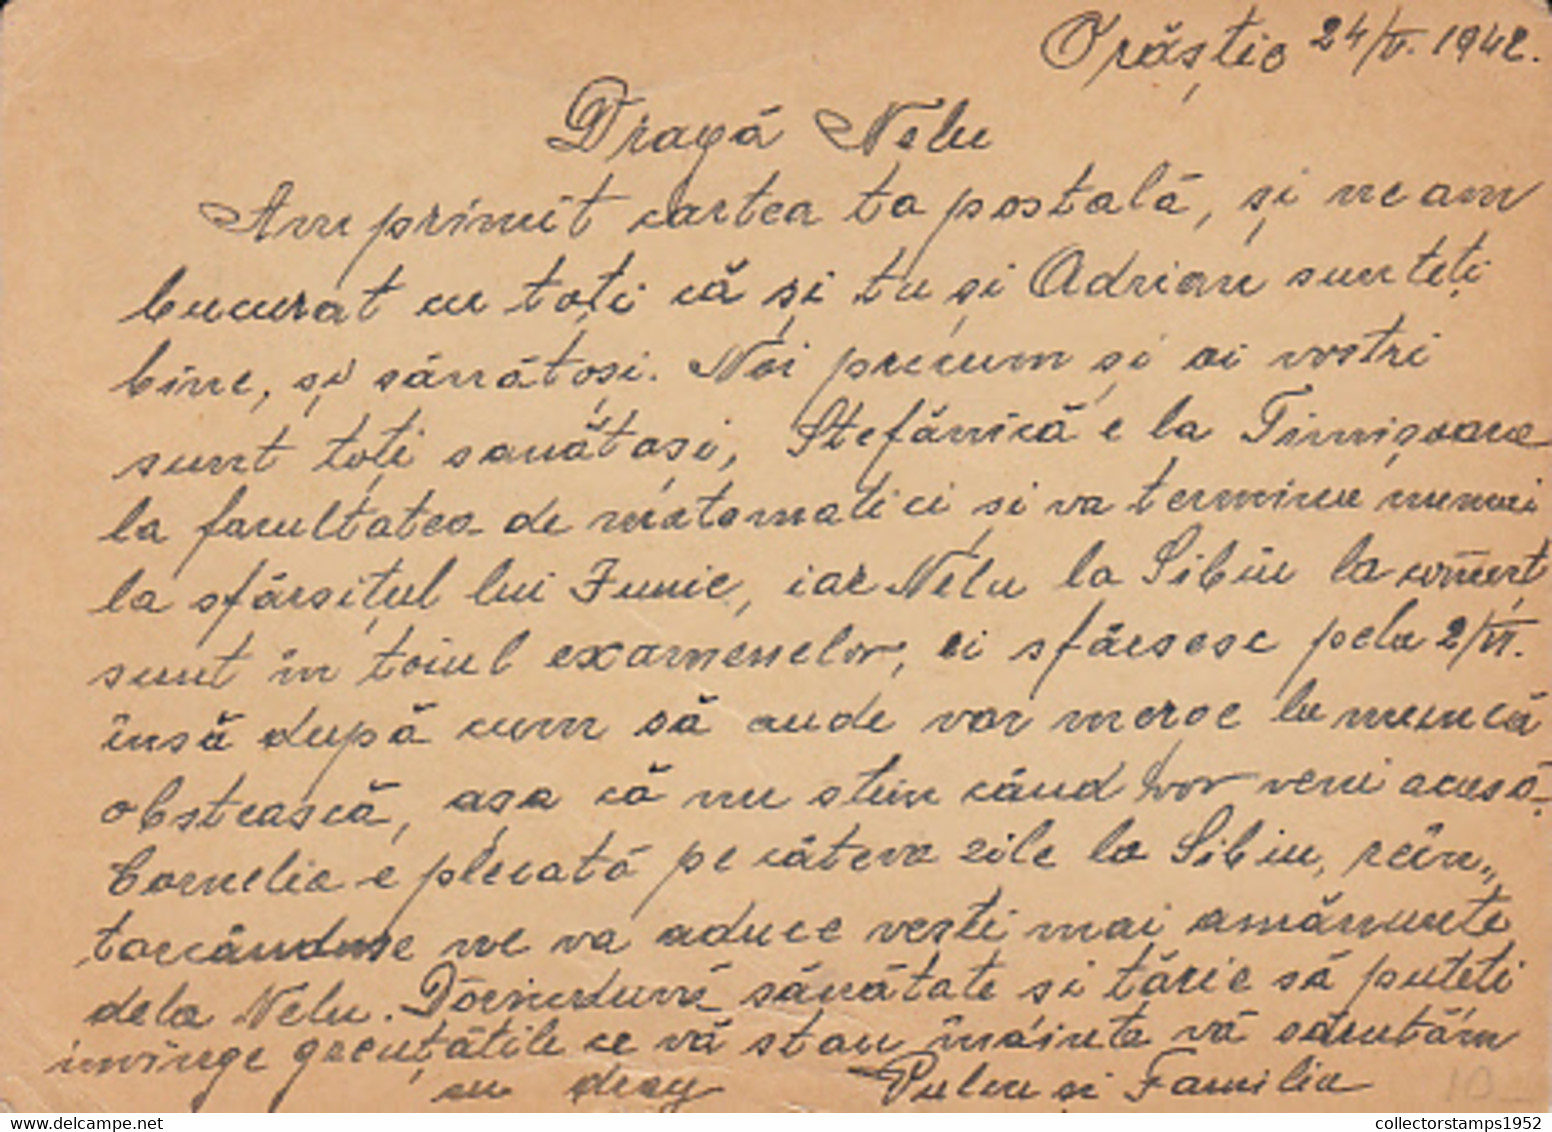 Orăștie 24/V. 1942.
Dragă Nelu
Am primit cartea ta postală, și ne am
bucurat cu toți că și tu și Adrian sunteți
bine, și sănătoși. Noi precum și ai vostri
sunt toți sanătoși, Ștefănică e la Timișoara
la facultatea de matematici și va termina numai
la sfârsițul lui Iunie, iar Nelu la Sibiu la comerț
sunt în toiul examenelor, ei sfârsesc pela 2/VI.
însă după cum să aude vor merge la muncă
obstească, așa că nu stim când vor veni acasă.
Cornelia e plecată pe câteva zile la Sibiu, reîn„
torcânduse ne va aduce vești mai amănunte
dela Nelu. Dorinduvă sănătate si tărie să puteti
invinge greutățile ce vă stau înainte vă sărutăm
cu drag Puiu si Familia
10
collectorstamps1952